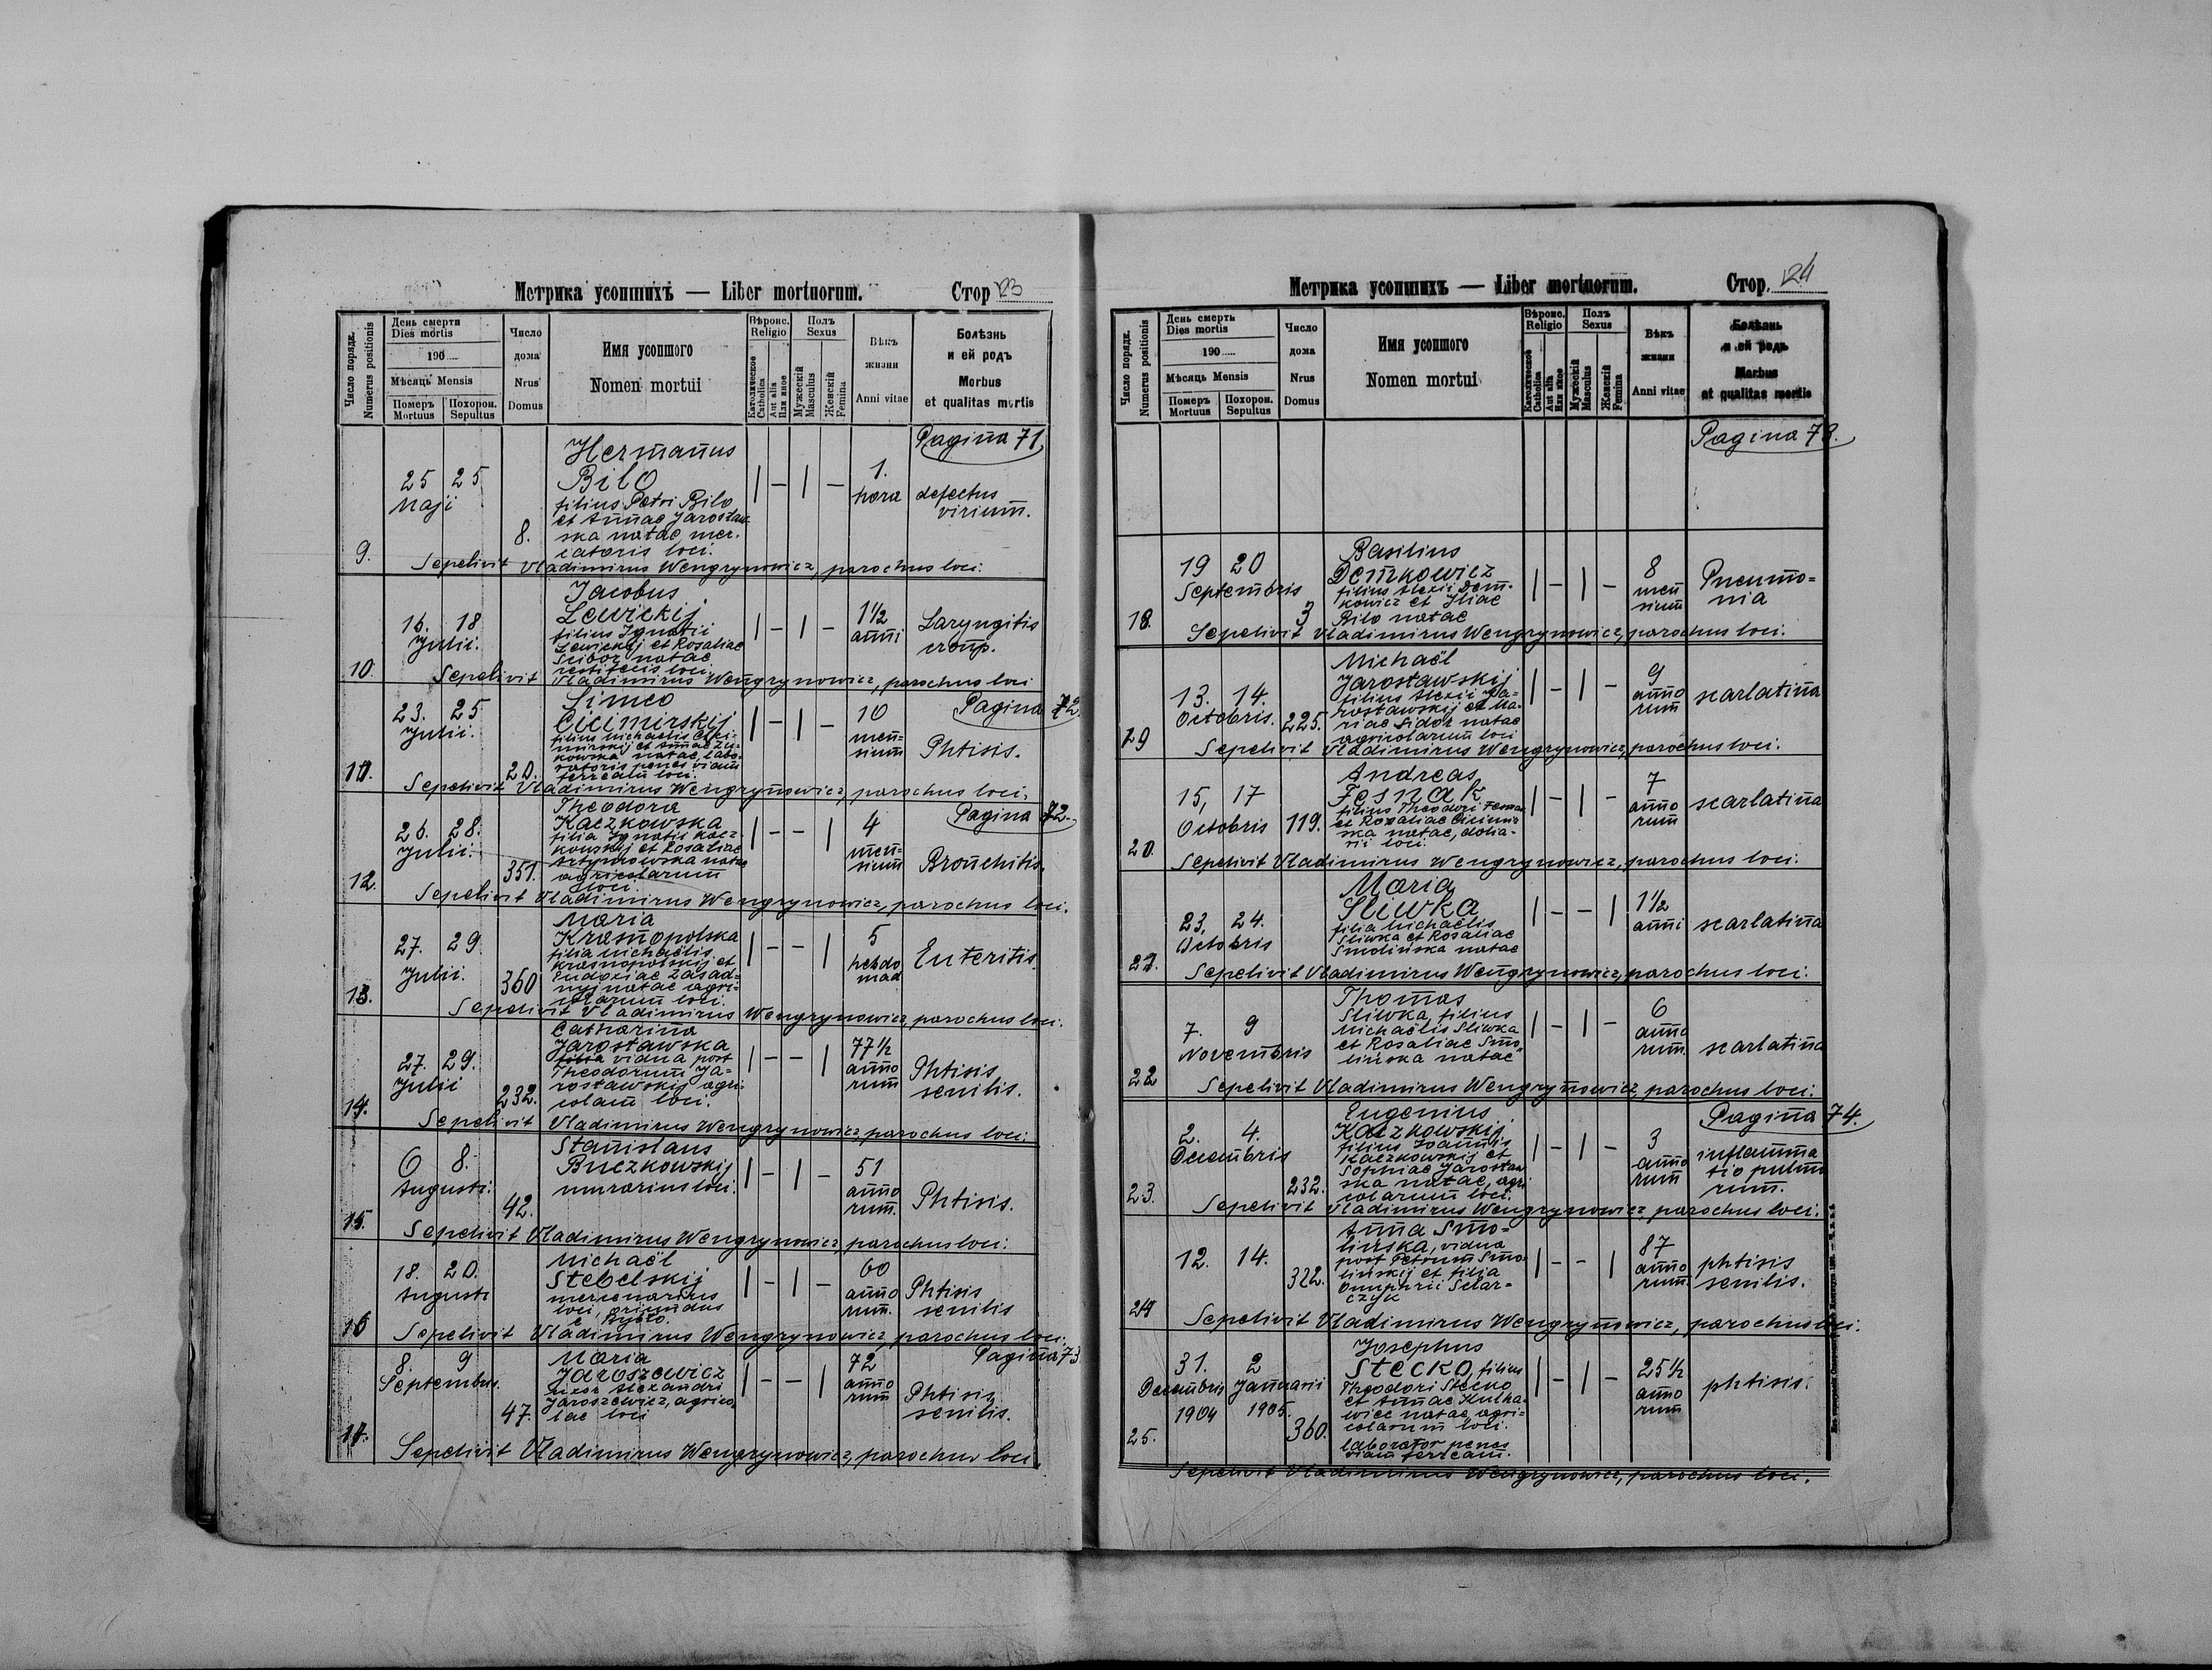 Метрика усопшихъ — Liber mortuorum.
Стор 23
Число порядк.
Numerus positionis
День смерти
Dies mortis
190
Мѣсяць Mensis
Померъ Похорон.
Mortuus Sepultus
Число
дома
Nrus
Domus
Имя усопшого
Nomen mortui
Вѣроис.
Religio
Католическое
Catholica
Aut alia
Или иное
Полъ
Sexus
Мужескій
Masculus
Женскій
Femina
Вѣкъ
жизни
Anni vitae
Болѣзнь
и ей родъ
Morbus
et qualitas mortis
Pagina 71.
9.
25 25
Maji
8.
Hermanus
Bilo
filius Petri Bilo
et Annae Jarosław
ska natae mer-
catoris loci.
1.
hora
defectus
virium.
Sepelivit Vladimirus Wengrynowicz, parochus loci.
10.
16. 18
Julii.
Jacobus
Lewickij
filius Ignatii
Lewickij et Rosaliae
Scibor natae
loci
1 1/2
anni
Laryngitis
croup.
Sepelivit Vladimirus Wengrynowicz, parochus loci
Pagina 72.
11.
23. 25
Julii.
20.
Simeo
Cicimirskij
filius Michaelis Cici-
mirskij et Annae Zu-
kowska natae, labo-
ratoris penes viam
ferream loci.
10
men-
sium
Phtisis.
Sepelivit Vladimirus Wengrynowicz, parochus loci.
Pagina 72.
12.
26. 28.
Julii.
351.
Theodora
Kaczkowska
filia Ignatii Kacz-
kowskij et Rosaliae
Artymowska natae
agricolarum
loci.
4
men-
sium
Bronchitis.
Sepelivit Vladimirus Wengrynowicz, parochus loci.
13.
27. 29
Julii.
360
Maria
Krasnopolska
filia Michaëlis
Krasnopolskij et
Eudoxiae Zasad-
nyj natae agri-
colarum loci.
5
hebdo
mad
Enteritis.
Sepelivit Vladimirus Wengrynowicz, parochus loci.
14.
27. 29.
Julii
232.
Catharina
Jarosławska
filia vidua post
Theodorum Ja-
rosławskij agri-
colam loci.
77 1/2
anno
rum
Phtisis
senilis.
Sepelivit Vladimirus Wengrynowicz parochus loci.
15.
6 8.
Augusti.
42.
Stanislaus
Buczkowskij
murarius loci.
51
anno
rum.
Phtisis.
Sepelivit Vladimirus Wengrynowicz, parochus loci.
16
18. 20.
Augusti
Michaël
Stebelskij
mercenarius
loci, oriundus
e Bybło.
60
anno
rum.
Phtisis
senilis
Sepelivit Vladimirus Wengrynowicz, parochus loci.
Pagina 73
17.
8. 9
Septembris.
47.
Maria
Jaroszewicz
uxor Alexandri
Jaroszewicz, agrico-
lae loci
72
anno
rum
Phtisis
senilis.
Sepelivit Vladimirus Wengrynowicz, parochus loci
Метрика усопшихъ — Liber mortuorum.
Стор. 24
Число порядк.
Numerus positionis
День смерть
Dies mortis
190
Мѣсяць Mensis
Померъ Похорон.
Mortuus Sepultus
Число
дома
Nrus
Domus
Имя усопшого
Nomen mortui
Вѣроис.
Religio
Католическое
Catholica
Aut alia
Или иное
Полъ
Sexus
Мужескій
Masculus
Женскій
Femina
Вѣкъ
жизни
Anni vitae
Болѣзнь
и ей родъ
Morbus
et qualitas mortis
Pagina 73.
18.
19 20
Septembris
3
Basilius
Demkowicz
filius Alexii Dem-
kowicz et Iliae
Bilo natae
8
men
sium
Pneumo=
nia
Sepelivit Vladimirus Wengrynowicz, parochus loci.
19
13. 14.
Octobris.
225.
Michaël
Jarosławskij
filius Alexii Ja=
rosławskij et Ma-
riae Sidor natae
agricolarum loci
9
anno
rum
scarlatina
Sepelivit Vladimirus Wengrynowicz, parochus loci.
20.
15, 17
Octobris
119.
Andreas
Fesnak
filius Theodori Fesnak
et Rosaliae Cicimir
ska natae, dolia-
rii loci.
7
anno
rum
scarlatina
Sepelivit Vladimirus Wengrynowicz, parochus loci.
21.
23, 24.
Octobris
Maria
Sliwka
filia Michaëlis
Sliwka et Rosaliae
Smolińska natae
1 1/2
anni
scarlatina
Sepelivit Vladimirus Wengrynowicz, parochus loci.
22
7. 9
Novembris
Thomas
Sliwka, filius
Michaëlis Sliwka
et Rosaliae Smo-
lińska natae
6
anno
rum.
scarlatina
Sepelivit Vladimirus Wengrynowicz, parochus loci.
Pagina 74.
23.
2. 4.
Decembris
232.
Eugenius
Kaczkowskij
filius Joannis
Kaczkowskij et
Sophiae Jarosław
ska natae, agri
colarum loci.
3
anno
rum
inflamma
tio pulmo
rum.
Sepelivit Vladimirus Wengrynowicz parochus loci.
24
12. 14.
322.
Anna Smo=
lińska, vidua
post Petrum Smo-
lińskij et filia
Onuphrii Selar-
czyk
87
anno
rum.
phtisis
senilis.
Sepelivit Vladimirus Wengrynowicz, parochus loci.
25.
31. 2
Decembris Januarii
1904 1905.
360.
Josephus
Stecko, filius
Theodori Stecko
et Annae Kulha-
wiec natae, agri=
colarum loci.
laborator penes
viam ferream.
25 1/2
anno
rum
phtisis.
Sepelivit Vladimirus Wengrynowicz, parochus loci.